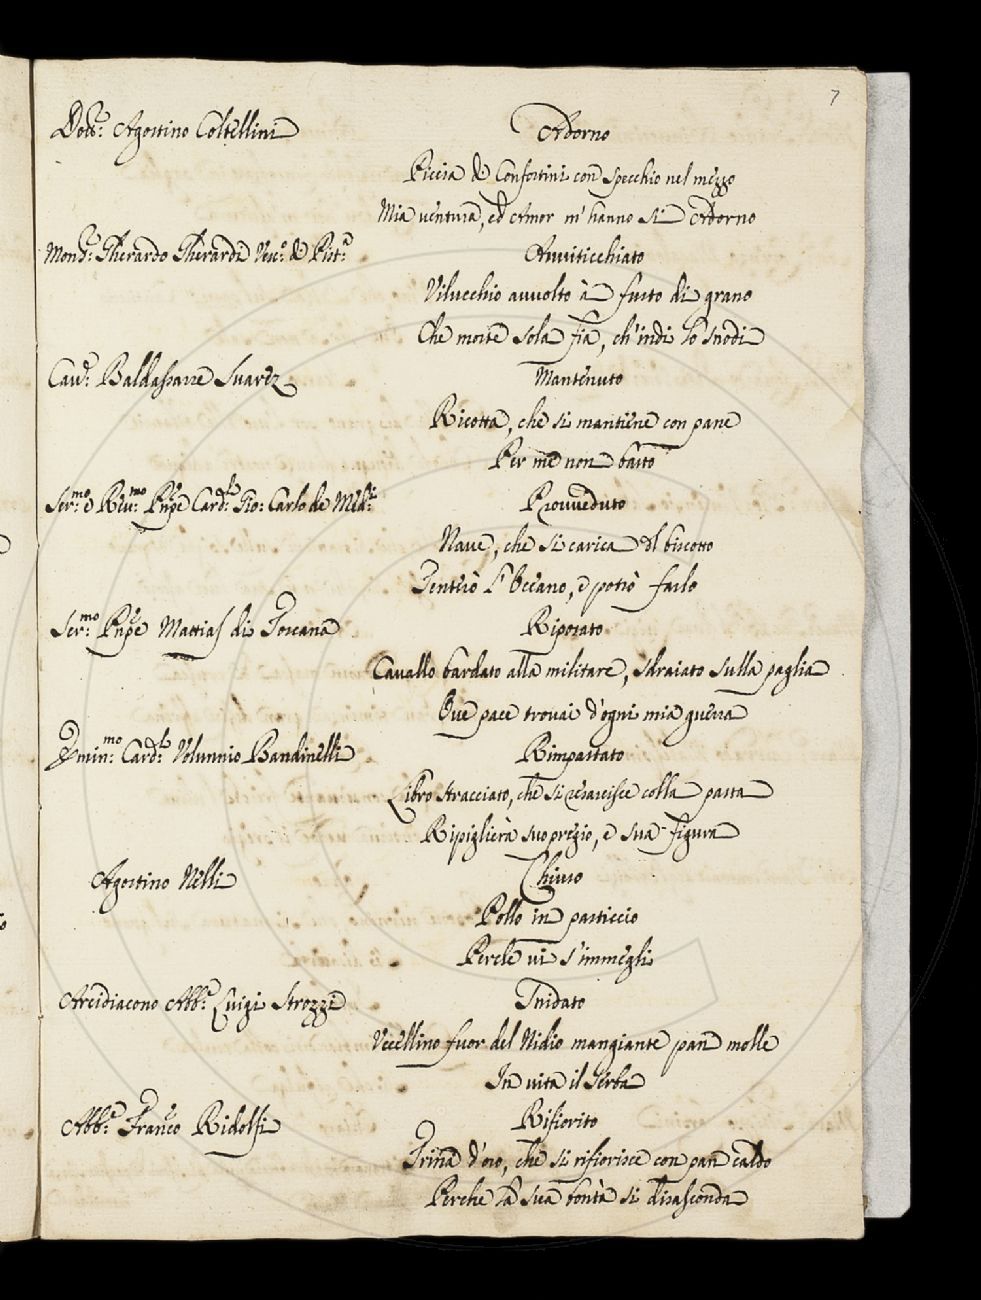 7
Dott.r Agostino Coltellini Adorno
Piccia di Confortini con specchio nel mezzo
Mia ventura, ed Amor m'hanno sì Adorno
Mons.r Gherardo Gherardi Vesc.o di Pist.a Avviticchiato
Vilucchio avvolto à fusto di grano
Che morte sola fia, ch'indi lo snodi
Cav.r Baldassarre Suarez Mantenuto
Ricotta, che si mantiene con pane
Per me non basto
Ser.mo e Rev.mo Pnpe Card.le Gio: Carlo de Med.i Provveduto
Nave, che si carica di biscotto
Tenterò l'Oceano, e potrò farlo
Ser.mo Pnpe Mattias di Toscana Riposato
Cavallo bardato alla militare, sdraiato sulla paglia
Ove pace trovai d'ogni mia guerra
Emin.mo Card.le Volunnio Bandinelli Rimpastato
Libro stracciato, che si risarcisce colla pasta
Ripiglierà suo pregio, e sua figura
Agostino Nelli Chiuso
Pollo in pasticcio
Perche vi s'immegli
Arcidiacono Abb.e Luigi Strozzi Snidato
Uccellino fuor del Nidio mangiante pan molle
In vita il serba
Abb.e Franco Ridolfi Rifiorito
Trina d'oro, che si rifiorisce con pan caldo
Perche la sua bontà si disasconda